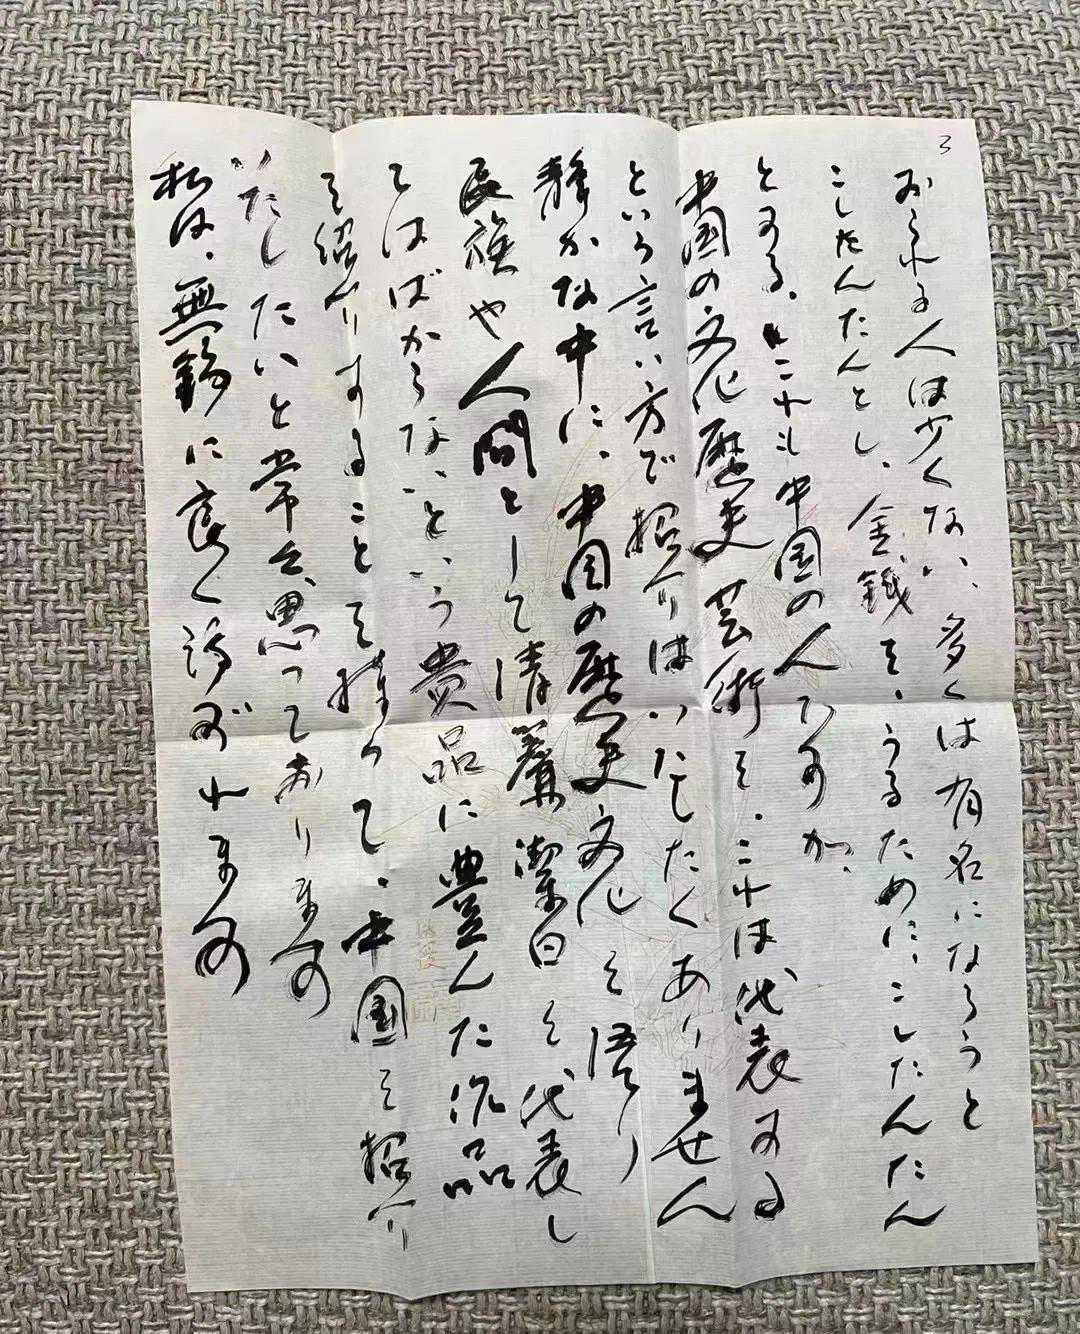 3
おられる人は少くない、多くは有名になろうと
こしたんたんとし、金銭を、うるために、こしたんたん
とする。これも中国の人ですか。
中国の文化歴史芸術を、これは代表する
という言い方で招介はいたしたくありません
静かな中に、中国の歴史文化を悟り
民族や人間として清簾潔白を代表し
てはばからない、という貴品に豊んだ作品
を紹介することを持って、中国を招介
いたしたいと常々、思っております
私は、無錫に良く訪ずれます